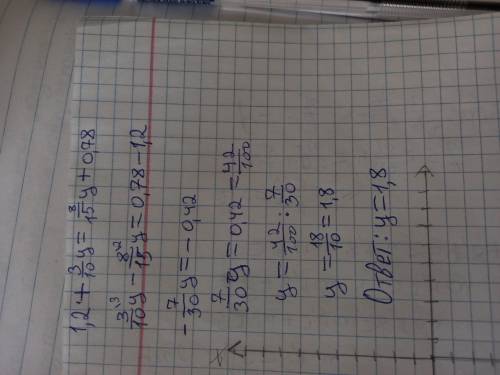 1,2 + 3/10 y = 8/15 y + 0,78
3^3/10 y - 8^2/15 y = 0,78 - 1,2
- 7/30 y = - 0,42
7/30 y = 0,42 = 42/100
y = 42/100 : 7/30
y = 18/10 = 1,8
Ответ: y = 1,8